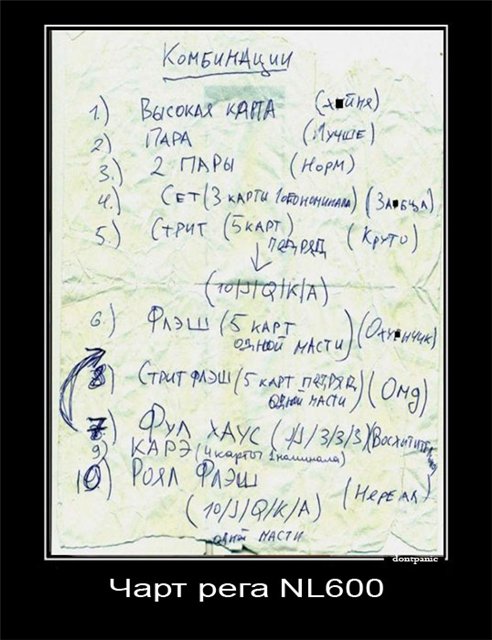 Комбинации
1.) Высокая карта (х■йня)
2) Пара (Лучше)
3.) 2 пары (норм)
4.) Сет (3 карты 1ого номинала) (За■бца)
5.) Стрит (5 карт) (Круто)
подряд
(10/J/Q/K/A)
6.) Флэш (5 карт (Оху■нчик)
одной масти)
8) Стрит флэш (5 карт подряд (Омд)
одной масти)
7) Фул хаус (J/J/3/3/3) (Восхитите
9) Карэ (4 карты 1 номинала)
10) Роял Флэш (Нереал)
(10/J/Q/K/A)
одной масти
dontpanic
Чарт рега NL600